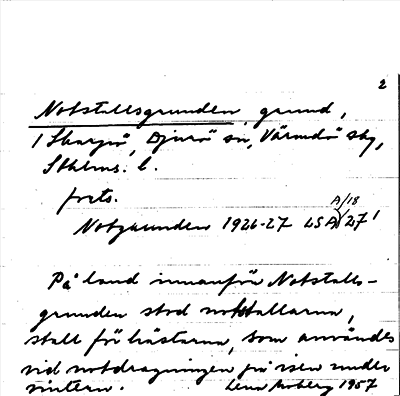 2
Notstallsgrunden, grund,
i Skarpö, Djurö sn, Värmdö sky,
Sthlms. l.
forts.
A/18
Notgrunden 1926-27 LSA 27'
På land innanför Notstalls-
grunden stod notstallarna,
stall för hästarna, som användes
vid notdragningen på isen under
vintern. Lena Moberg 1957